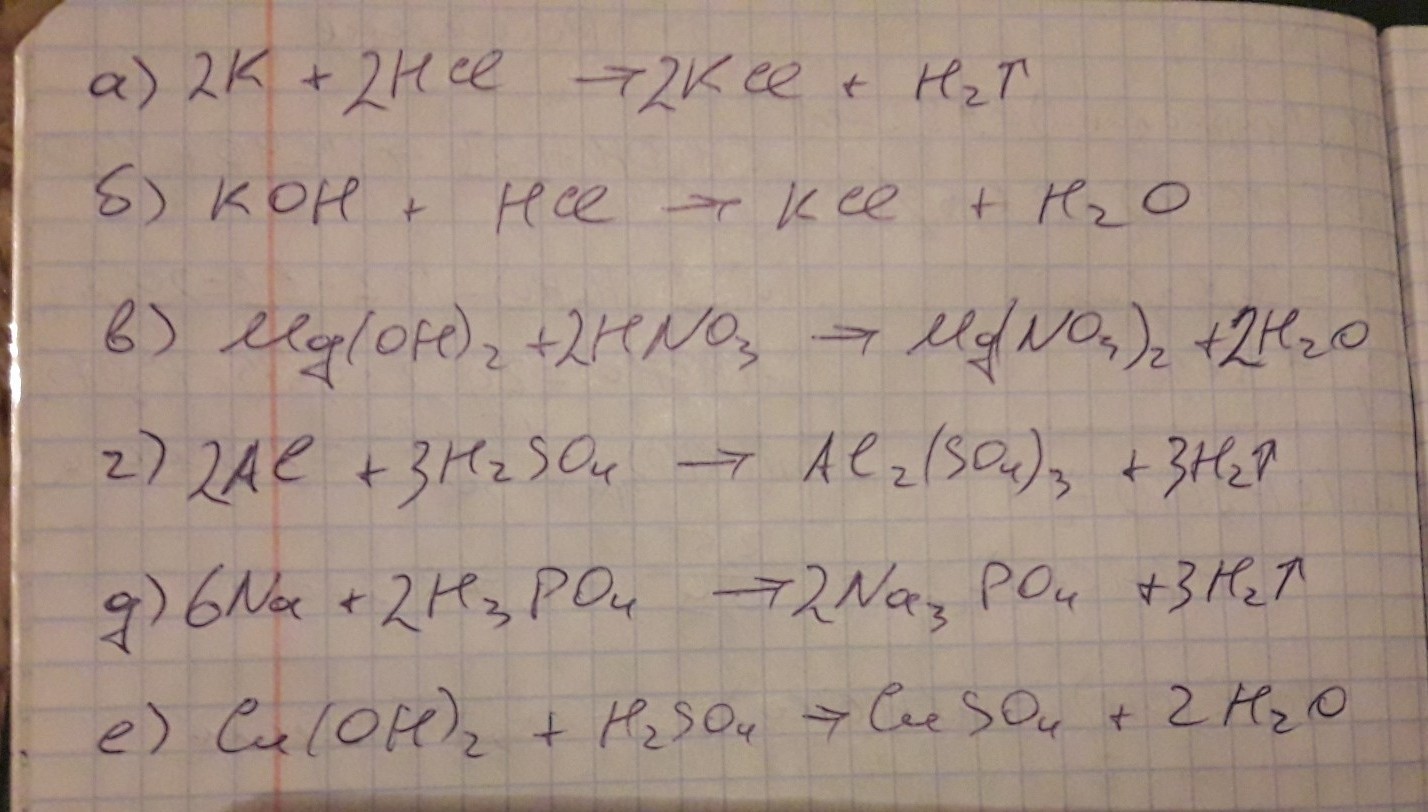 а) 2K + 2HCl → 2KCl + H₂↑
б) KOH + HCl → KCl + H₂O
в) Mg(OH)₂ + 2HNO₃ → Mg(NO₃)₂ + 2H₂O
г) 2Al + 3H₂SO₄ → Al₂(SO₄)₃ + 3H₂↑
д) 6Na + 2H₃PO₄ → 2Na₃PO₄ + 3H₂↑
е) Cu(OH)₂ + H₂SO₄ → CuSO₄ + 2H₂O